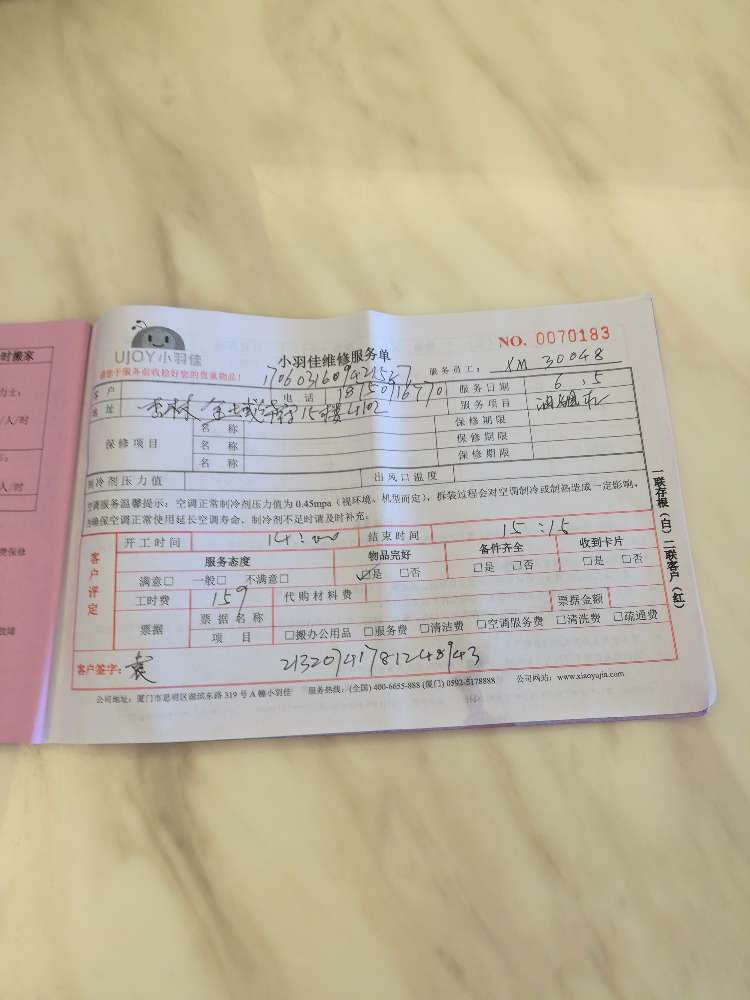 时搬家
力士：
/人/时
/人/时
费保修
UJOY小羽佳
小羽佳维修服务单
NO. 0070183
请您于服务前收检好您的贵重物品！
服务员工： XM 30048
客户 电话 18150716770 服务日期 6.5
地址 杏林 15楼 4102 服务项目 油烟机
保修项目 名称 保修期限
名称 保修期限
名称 保修期限
制冷剂压力值 出风口温度
空调服务温馨提示：空调正常制冷剂压力值为 0.45mpa（视环境、机型而定），拆装过程会对空调制冷或制热造成一定影响，
为确保空调正常使用延长空调寿命，制冷剂不足时请及时补充。
客户评定
开工时间 14:00 结束时间 15:15
服务态度 物品完好 备件齐全 收到卡片
满意□ 一般□ 不满意□ ☑是 □否 □是 □否 □是 □否
工时费 159 代购材料费
票据 票据名称 票据金额
项目 □搬办公用品 □服务费 □清洁费 □空调服务费 □清洗费 □疏通费
客户签字： 袁 21320741781248943
公司地址：厦门市思明区湖滨东路 319 号 A 幢小羽佳 服务热线：(全国) 400-6655-888 (厦门) 0592-5178888 公司网站：www.xiaoyujia.com
一联存根（白）二联客户（红）